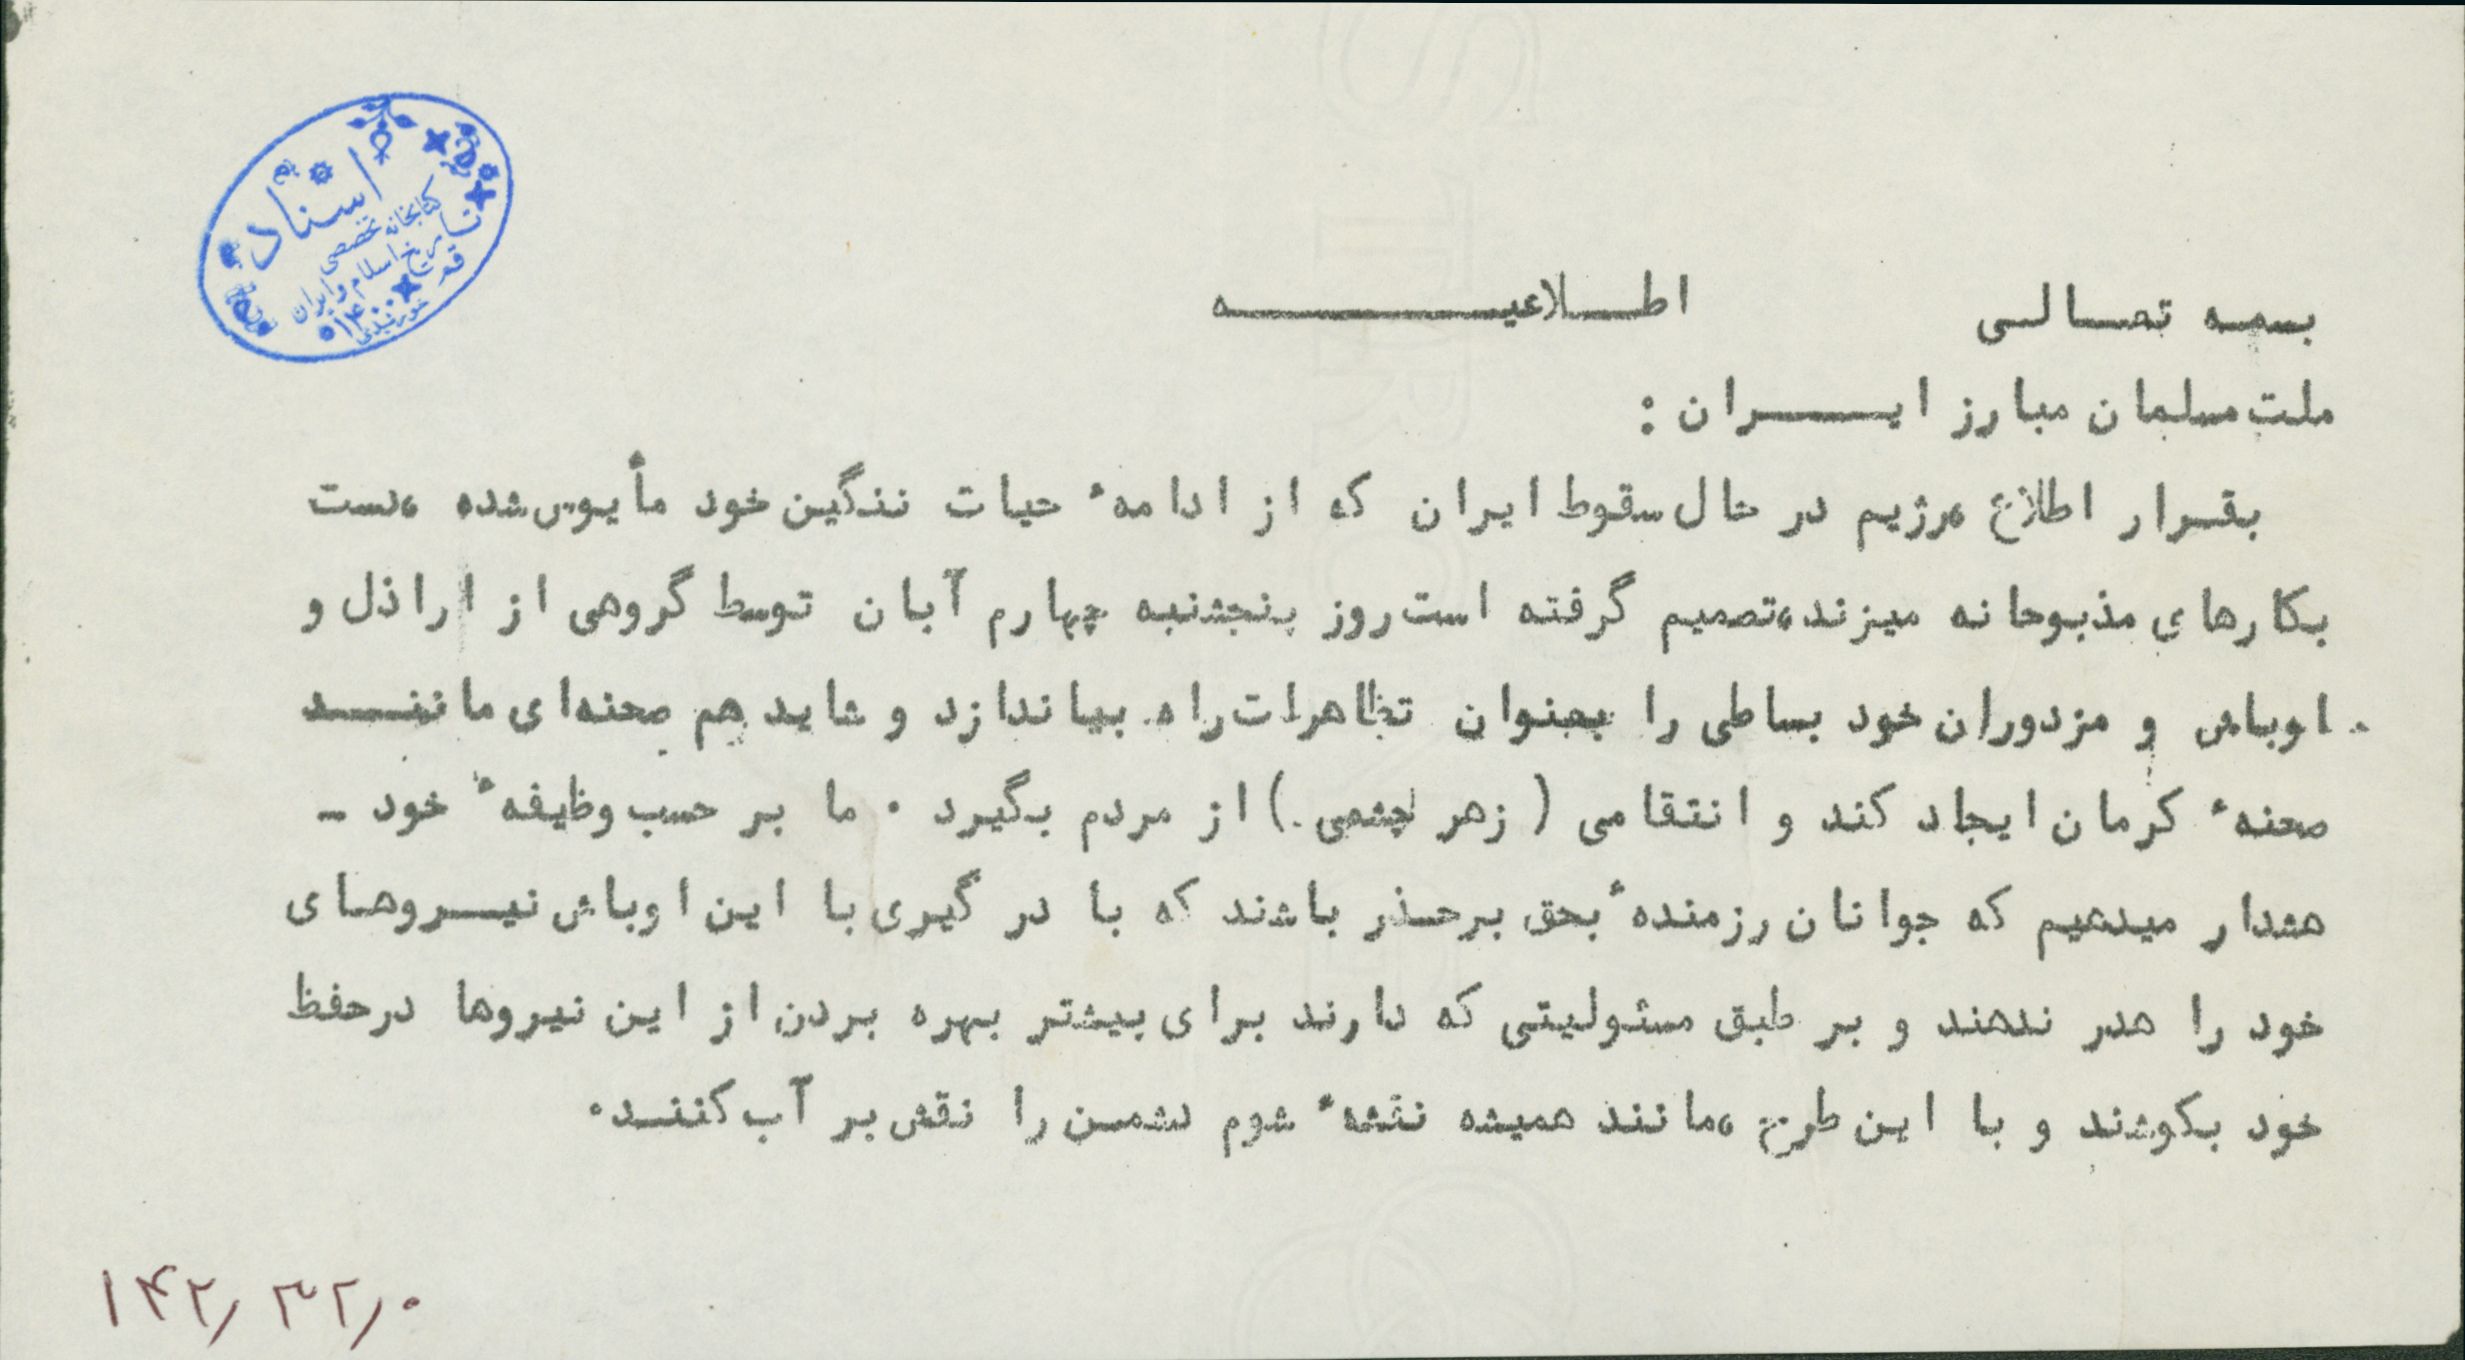 اسناد
کتابخانه تخصصی
تاریخ اسلام و ایران
قم
بسمه تعالی
اطلاعیه
ملت مسلمان مبارز ایران :
بقرار اطلاع ،رژیم در حال سقوط ایران که از ادامهٔ حیات ننگین خود مأیوس شده ،دست
بکارهای مذبوحانه میزند،تصمیم گرفته است روز پنجشنبه چهارم آبان توسط گروهی از اراذل و
اوباش و مزدوران خود بساطی را بعنوان تظاهرات راه بیاندازد و شاید هم صحنه‌ای مانند
صحنهٔ کرمان ایجاد کند و انتقامی ( زهر چشمی ) از مردم بگیرد . ما بر حسب وظیفهٔ خود -
هشدار میدهیم که جوانان رزمندهٔ بحق برحذر باشند که با در گیری با این اوباش نیروهای
خود را هدر ندهند و بر طبق مسئولیتی که دارند برای بیشتر بهره بردن از این نیروها درحفظ
خود بکوشند و با این طرح ،مانند همیشه نقشهٔ شوم دشمن را نقش بر آب کنند.
۱۴۲٫ ۳۲٫۰